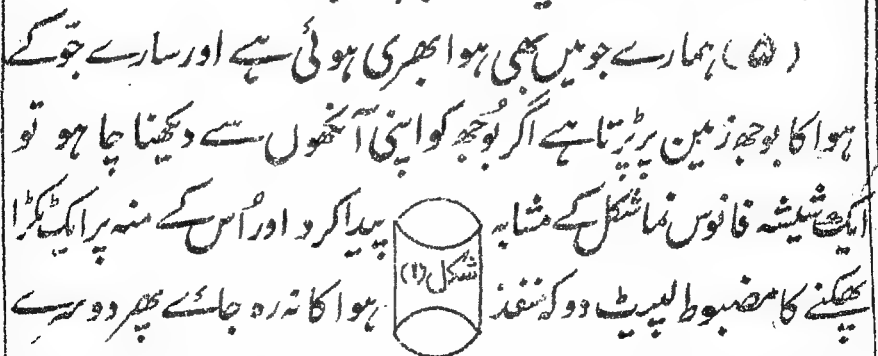 (۵) ہمارے جو میں بھی ہوا بھری ہوئی ہے اور سارے جوّ کے
ہوا کا بوجھ زمین پر پڑتا ہے اگر بُوجھ کو اپنی آنکھوں سے دیکھنا چاہو تو
ایک شیشہ فانوس نما شکل کے مشابہ پیدا کرو اور اُس کے منہ پر ایک ٹکڑا
پھکنے کا مضبوط لپیٹ دو کہ منفذ ہوا کا نہ رہ جائے پھر دوسرے
شکل (۱)